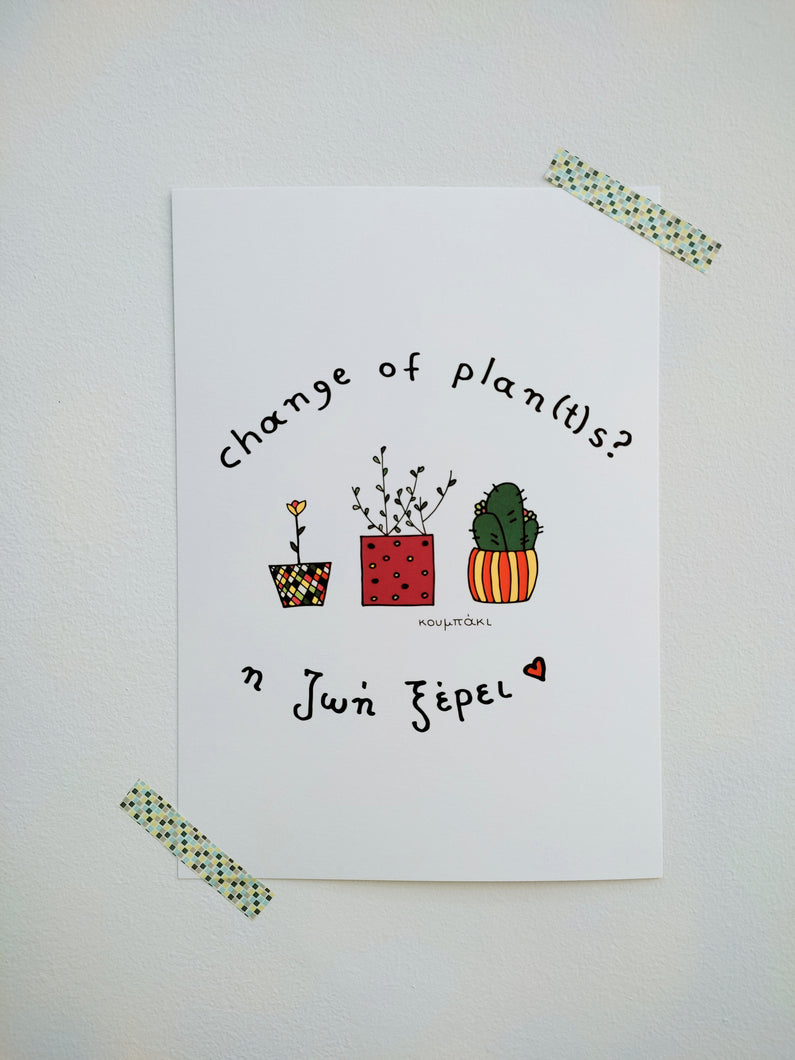 change of plan(t)s?
κουμπάκι
η ζωή ξέρει